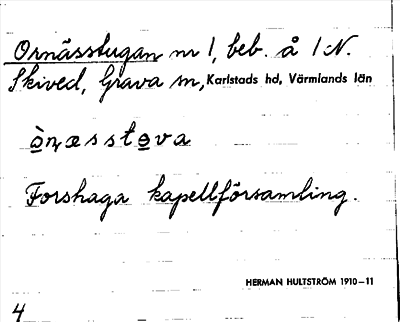 Ornässtugan nr 1, beb. å 1 N.
Skived, Grava sn, Karlstads hd, Värmlands län
ò̱ṇæssto̱va
Forshaga kapellförsamling.
HERMAN HULTSTRÖM 1910–11
4